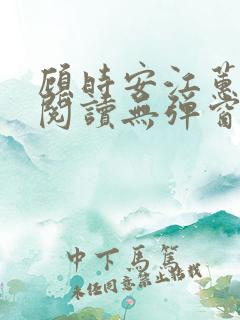 顧時安江蕙
閱讀無彈窗
中下馬篤
未經同意禁止轉載